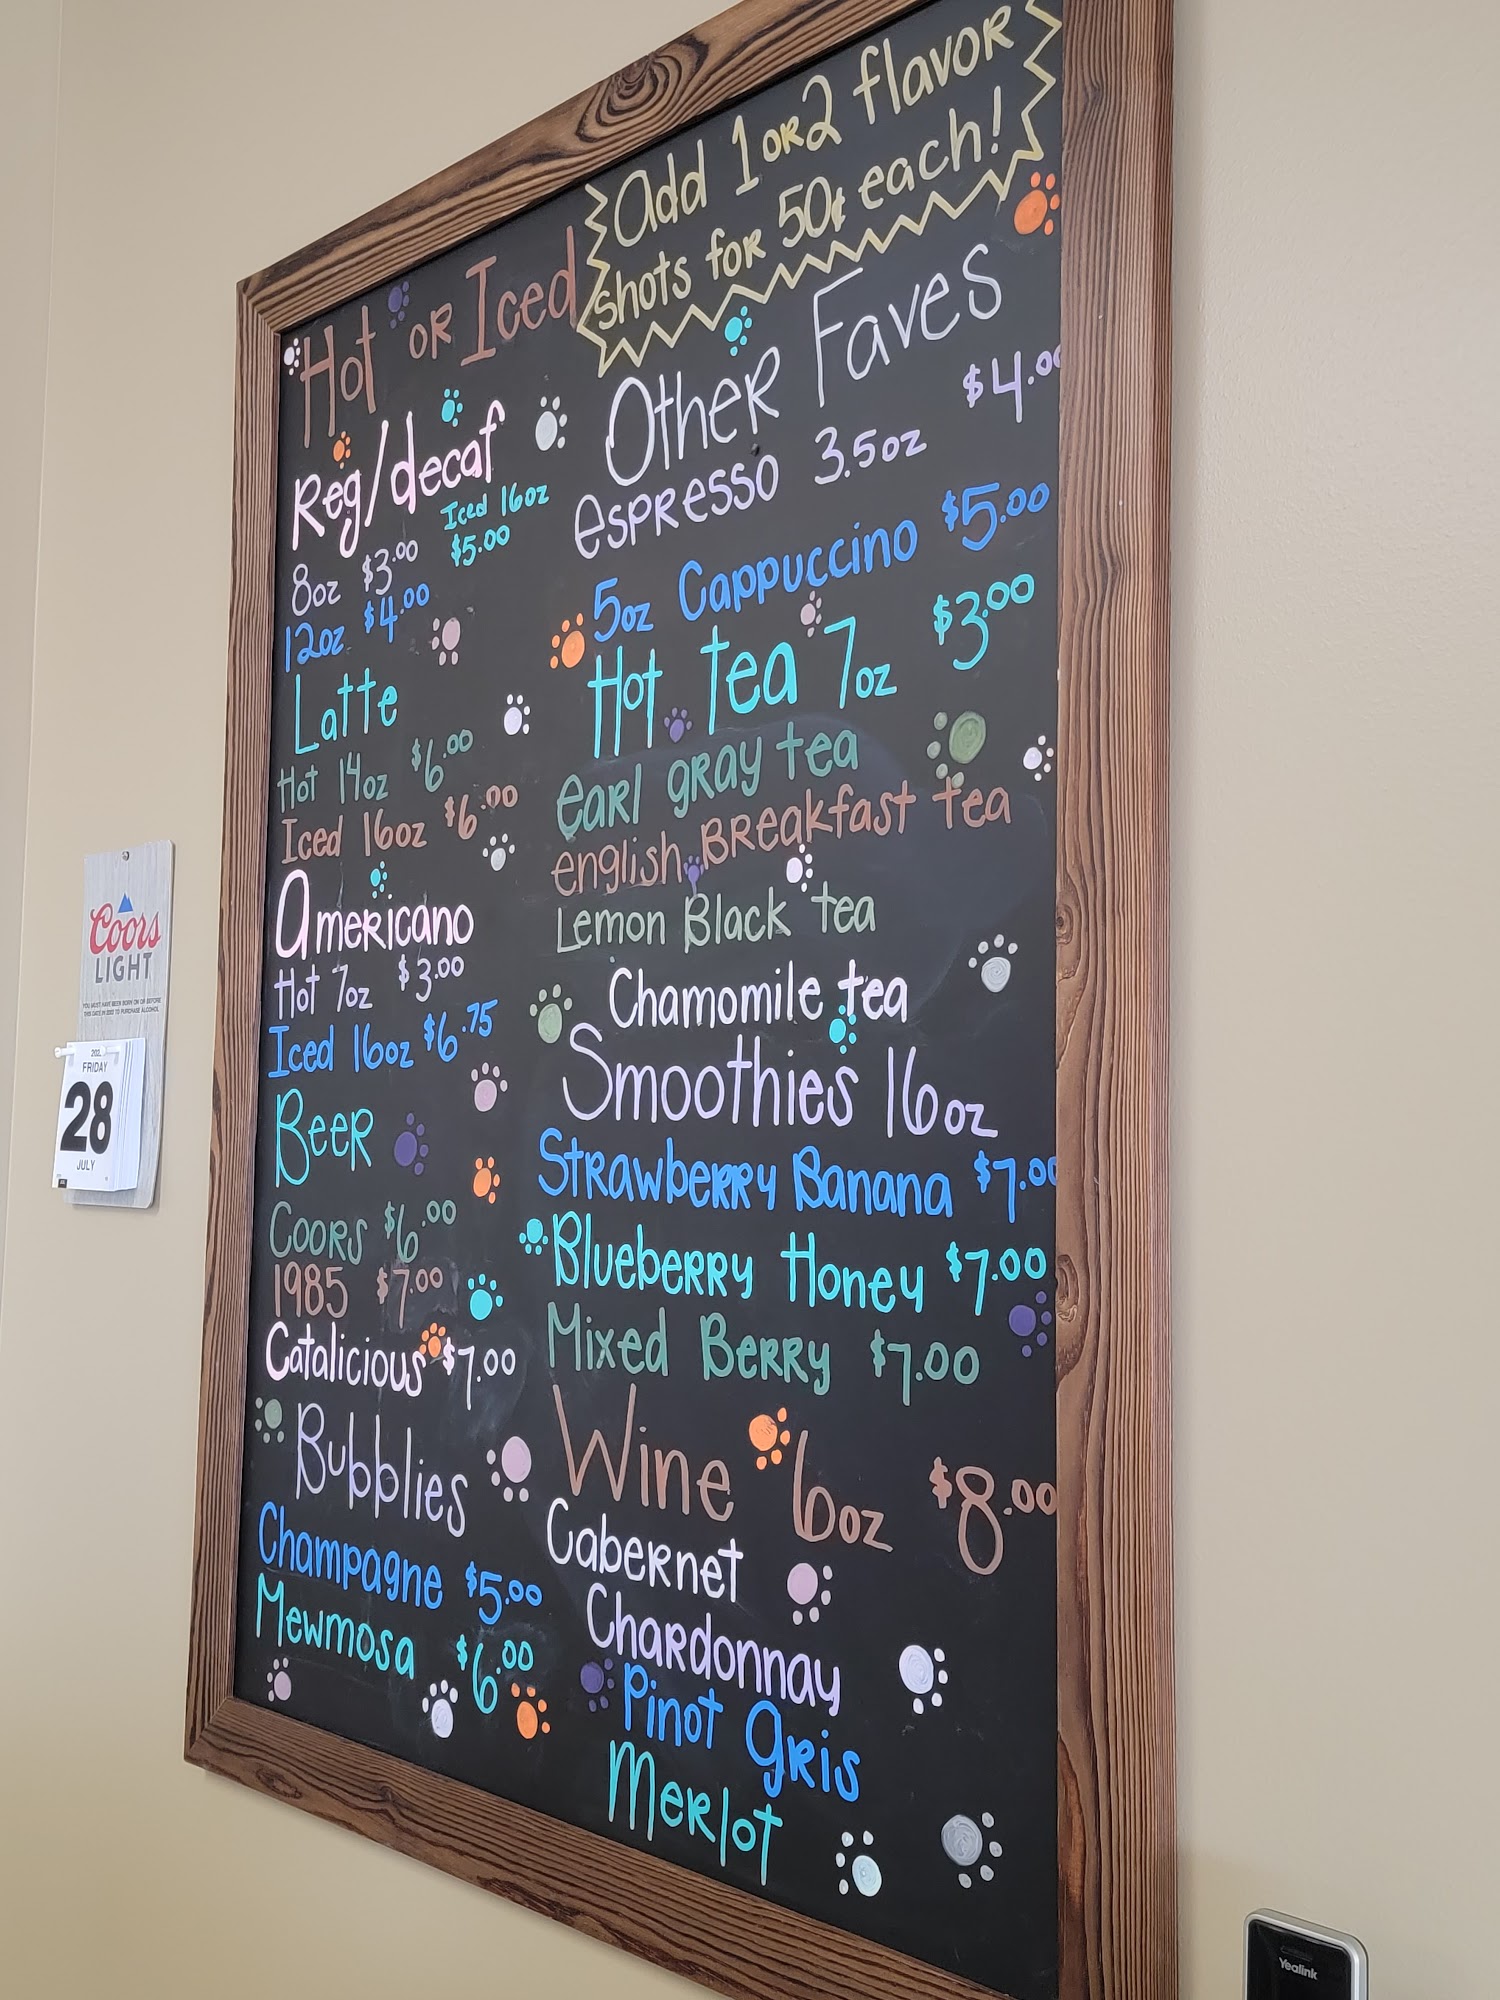 Add 1 or 2 flavor
shots for 50¢ each!
Hot or Iced
Reg/decaf
Iced 16oz
$5.00
8oz $3.00
12oz $4.00
Latte
Hot 14oz $6.00
Iced 16oz $6.00
Americano
Hot 7oz $3.00
Iced 16oz $6.75
Beer
Coors $6.00
1985 $7.00
Catalicious $7.00
Bubblies
Champagne $5.00
Mewmosa $6.00
Other Faves
espresso 3.5oz $4.00
5oz Cappuccino $5.00
Hot Tea 7oz $3.00
earl gray tea
english Breakfast tea
Lemon Black tea
Chamomile tea
Smoothies 16oz
Strawberry Banana $7.00
Blueberry Honey $7.00
Mixed Berry $7.00
Wine 6oz $8.00
Cabernet
Chardonnay
Pinot Gris
Merlot
Coors
LIGHT
YOU MUST HAVE BEEN BORN ON OR BEFORE
THIS DATE IN 2002 TO PURCHASE ALCOHOL
FRIDAY
28
JULY
Yealink